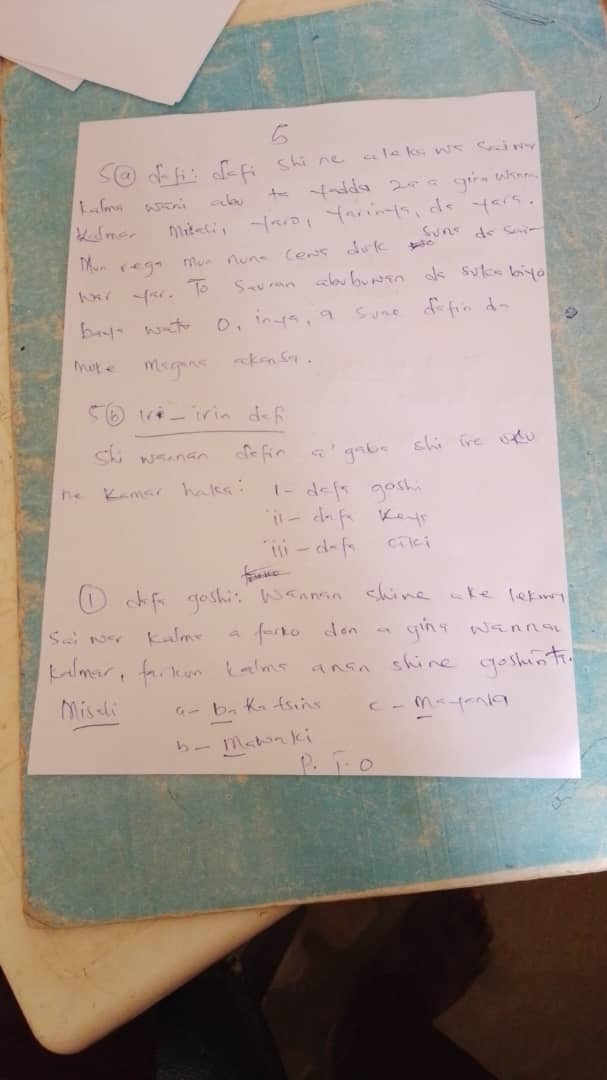 5
5(a) dafi: dafi shi ne ake laka wa saiwar
kalma wani abu ta yadda za a gina wanna
kalmar misali, yaro, yarinya, da yara.
Mun rega mun nuna cewa duk suna da sai-
war yar. To sauran abubuwan da suka biyo
baya wato o, inya, a sune dafin da
muke magana akansa.
5(b) iri-irin dafi
Shi wannan dafin a'gaba shi ire uku
ne kamar haka: 1- dafa goshi
ii- dafa keya
iii-dafa ciki
(1) dafa goshi: wannan shine ake
sai war kalma a farko don a gina wannan
kalmar, farkon kalma anan shine goshinta.
Misali a- ba katsina c- Mayanka
b- Mawaki
P.T.O